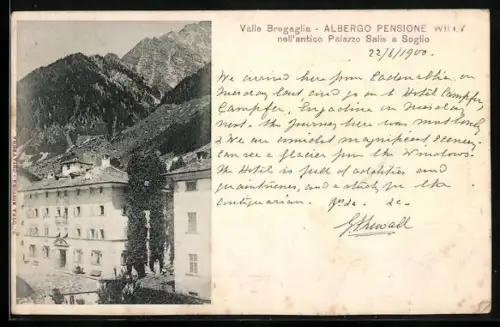 Valle Bregaglia - ALBERGO PENSIONE WILLY
nell'antico Palazzo Salis a Soglio
22/6/1900.
We arrived here from Cadenabbia on
last and go on to Hotel Campfer,
Campfer, Engadine on
next. the journey here was most lovely
& We are amidst magnificent scenery
can see a glacier from the Windows.
the Hotel is full of oddities and
quaintnesses, and a study for the
antiquarian.